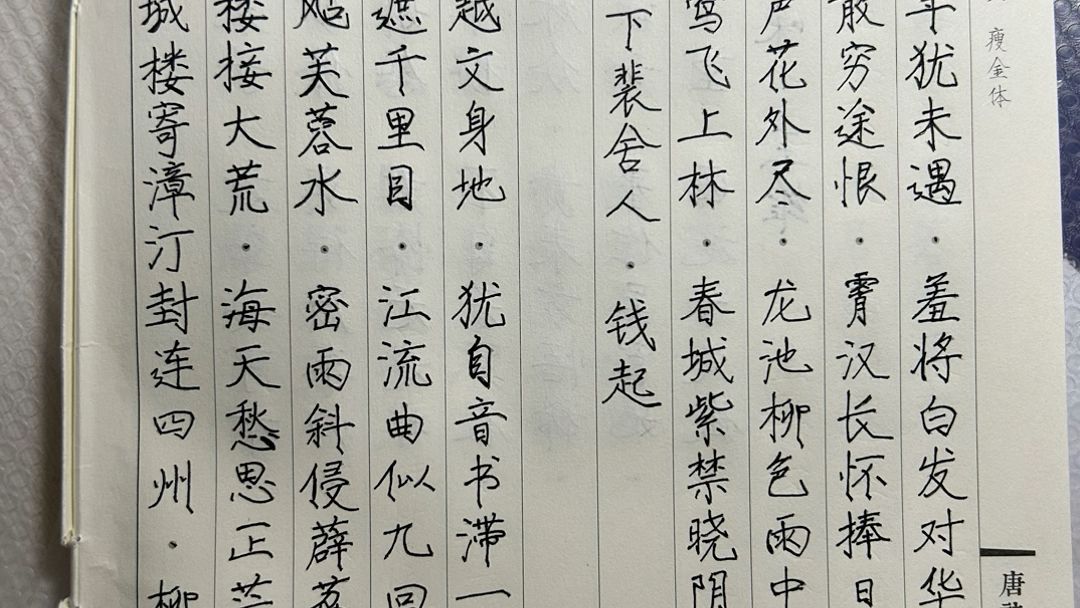 城楼寄漳汀封连四州·柳
楼接大荒·海天愁思正茫
飐芙蓉水·密雨斜侵薜荔
遮千里目·江流曲似九回
越文身地·犹自音书滞一
下裴舍人·钱起
莺飞上林·春城紫禁晓阴
声花外尽·龙池柳色雨中
散穷途恨·霄汉长怀捧日
年犹未遇·羞将白发对华
瘦金体
唐